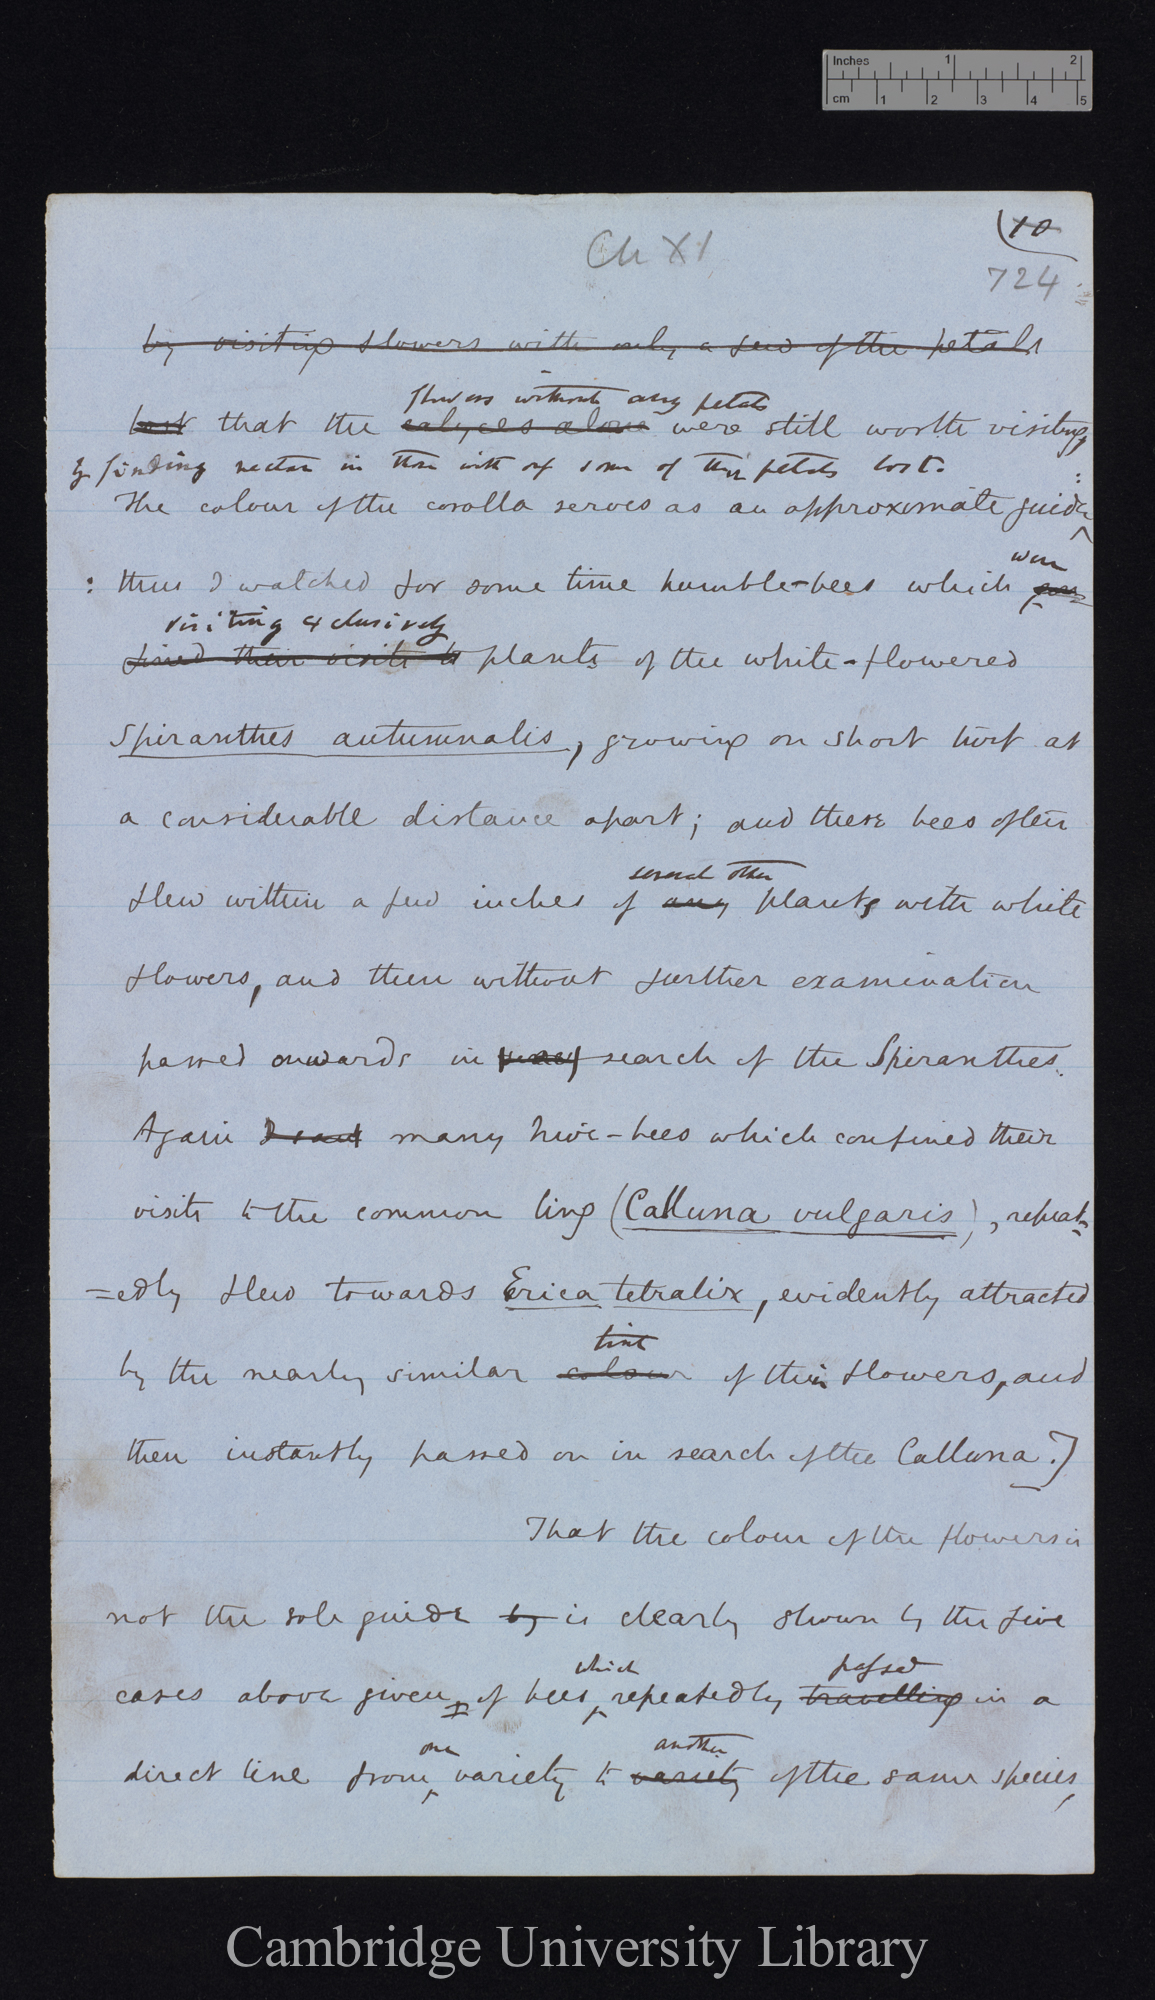 Inches 1 2
cm 1 2 3 4 5
(10
Ch XI
724
by visiting flowers with only a few of the petals
flowers without any petals
lost that the calyces alone were still worth visiting,
by finding nectar in those with only some of their petals lost.
The colour of the corolla serves as an approximate guide
:
were
: thus I watched for some time humble-bees which
visiting exclusively
fined their visits to plants of the white-flowered
Spiranthes autumnalis, growing on short turf at
a considerable distance apart; and these bees often
several other
flew within a few inches of any plants with white
flowers, and then without further examination
passed onwards in search of the Spiranthes.
Again I saw many hive-bees which confined their
visits to the common ling (Calluna vulgaris), repeat-
=edly flew towards Erica tetralix, evidently attracted
tint
by the nearly similar colour of their flowers, and
then instantly passed on in search of the Calluna.]
That the colour of the flowers is
not the sole guide by is clearly shown by the five
which passed
cases above given of bees repeatedly travelling in a
one another
direct line from variety to variety of the same species,
Cambridge University Library